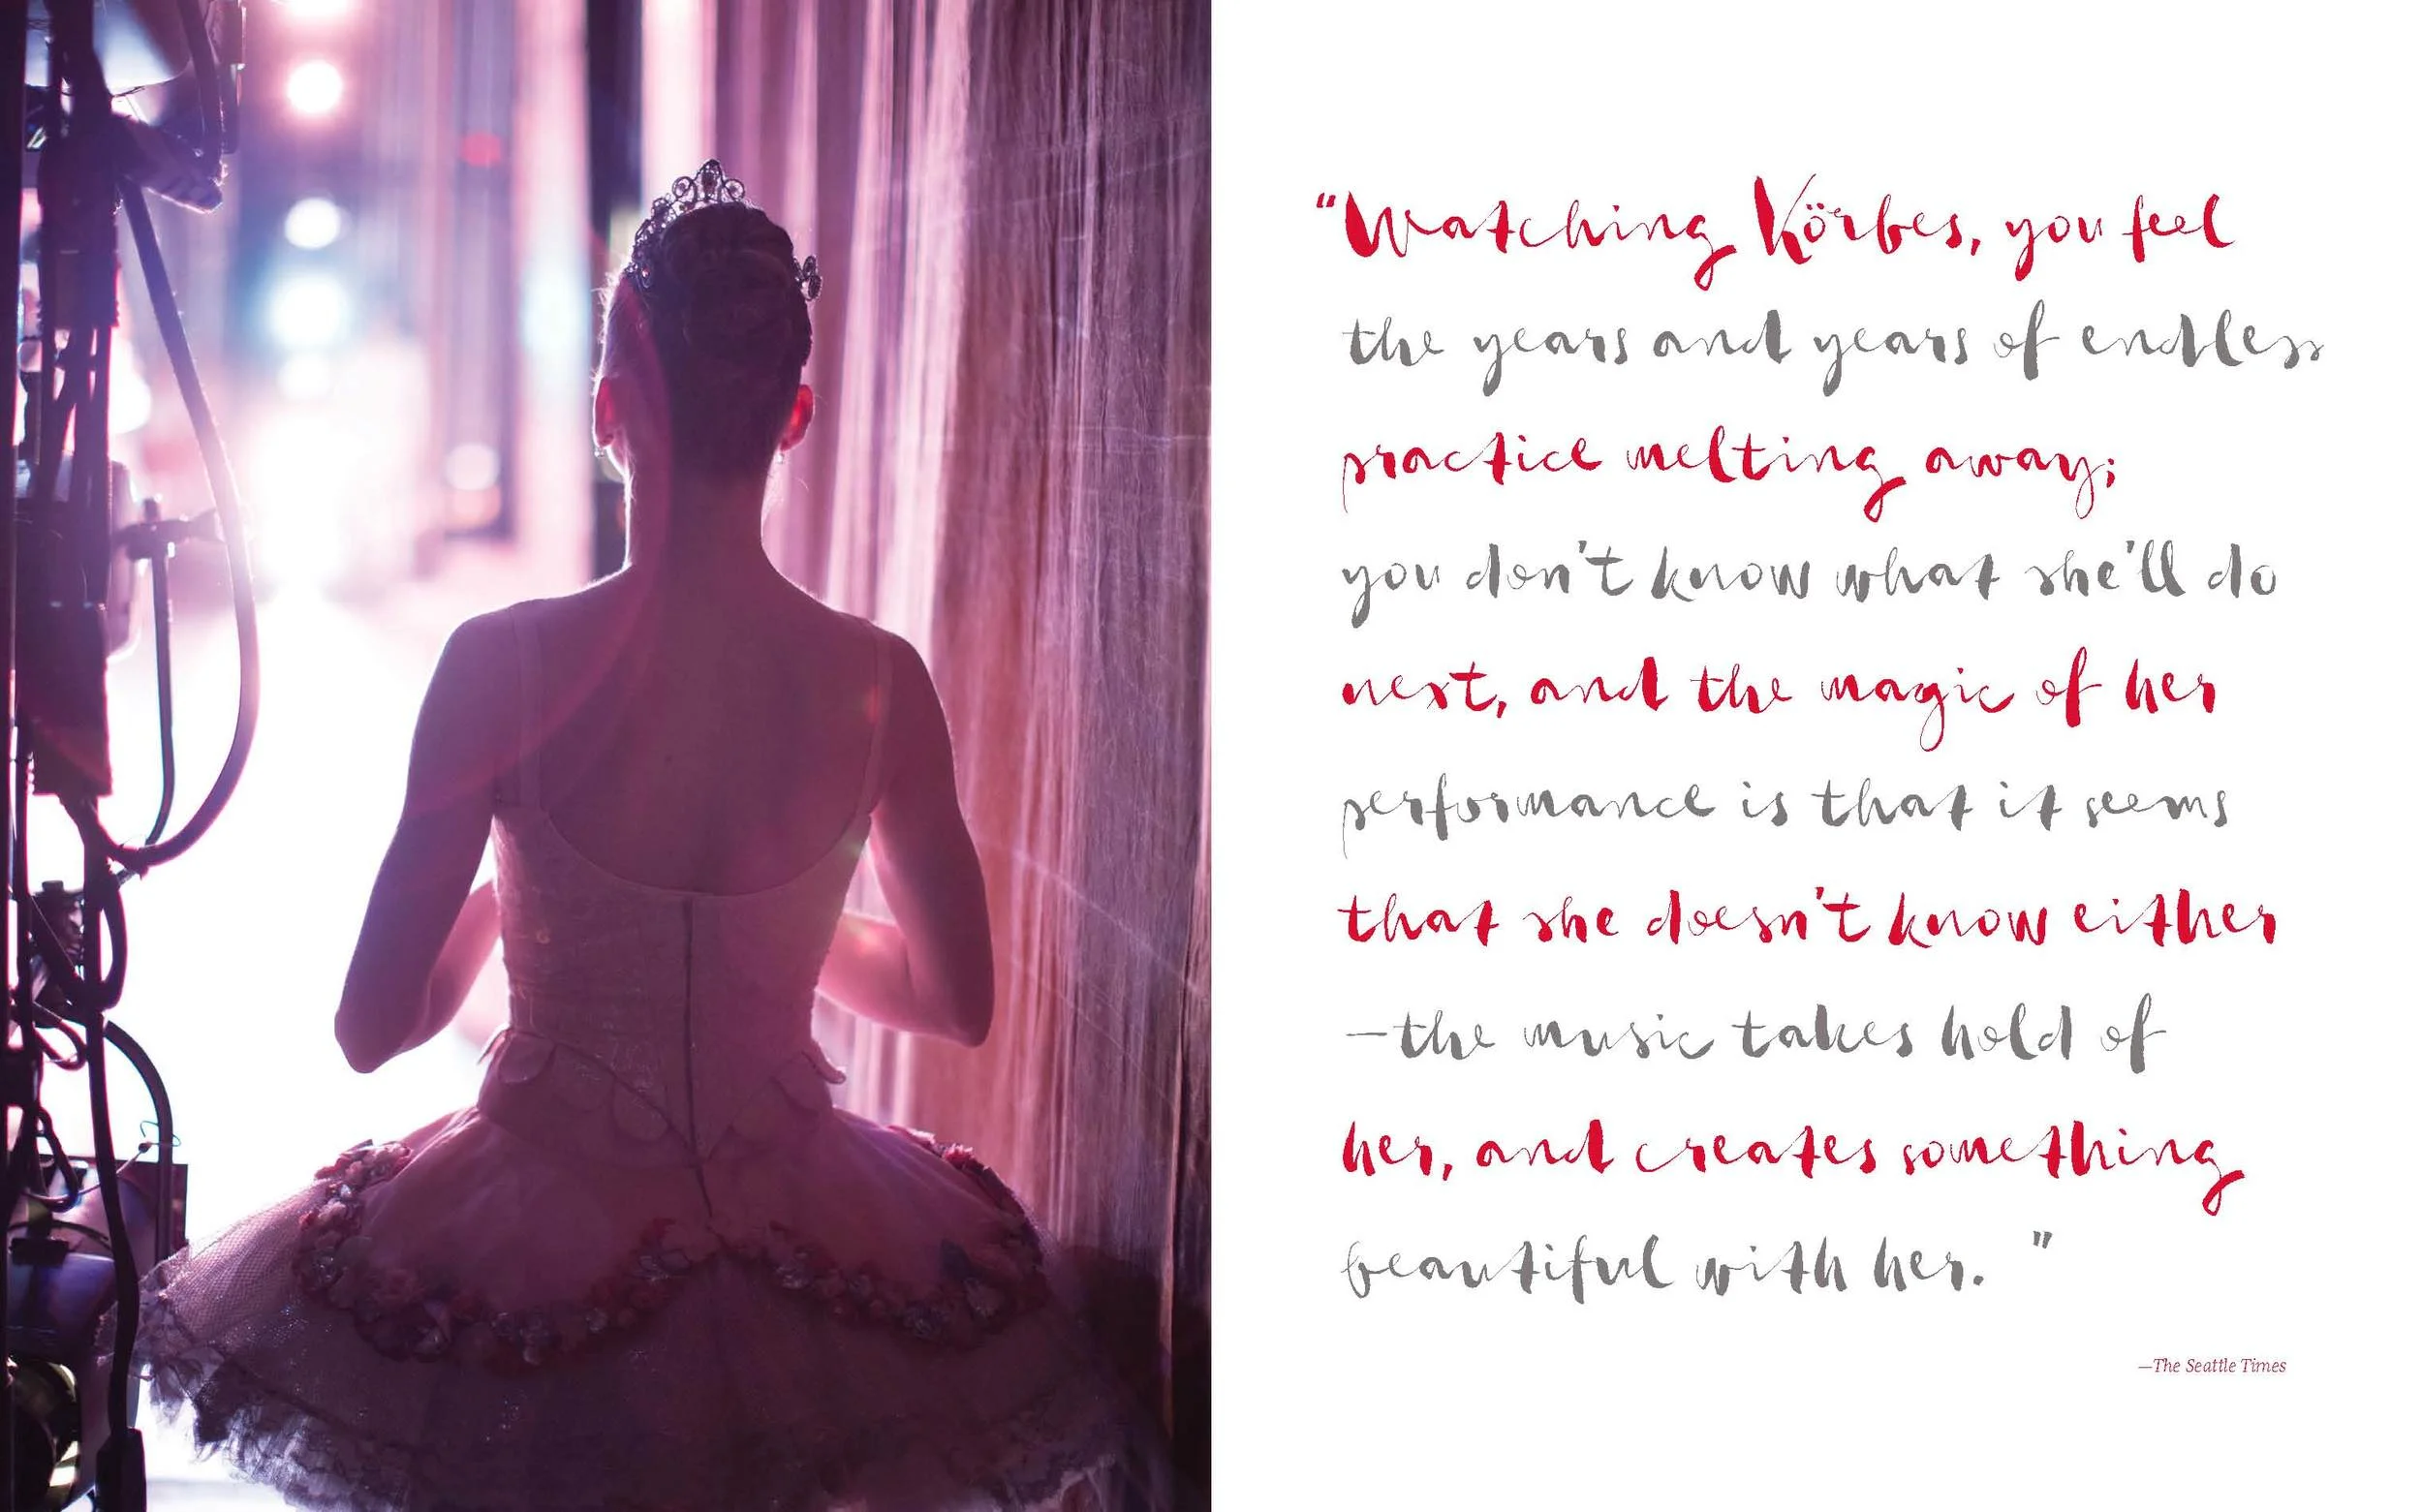 “Watching Körbes, you feel
the years and years of endless
practice melting away;
you don't know what she'll do
next, and the magic of her
performance is that it seems
that she doesn't know either
—the music takes hold of
her, and creates something
beautiful with her. ”
—The Seattle Times